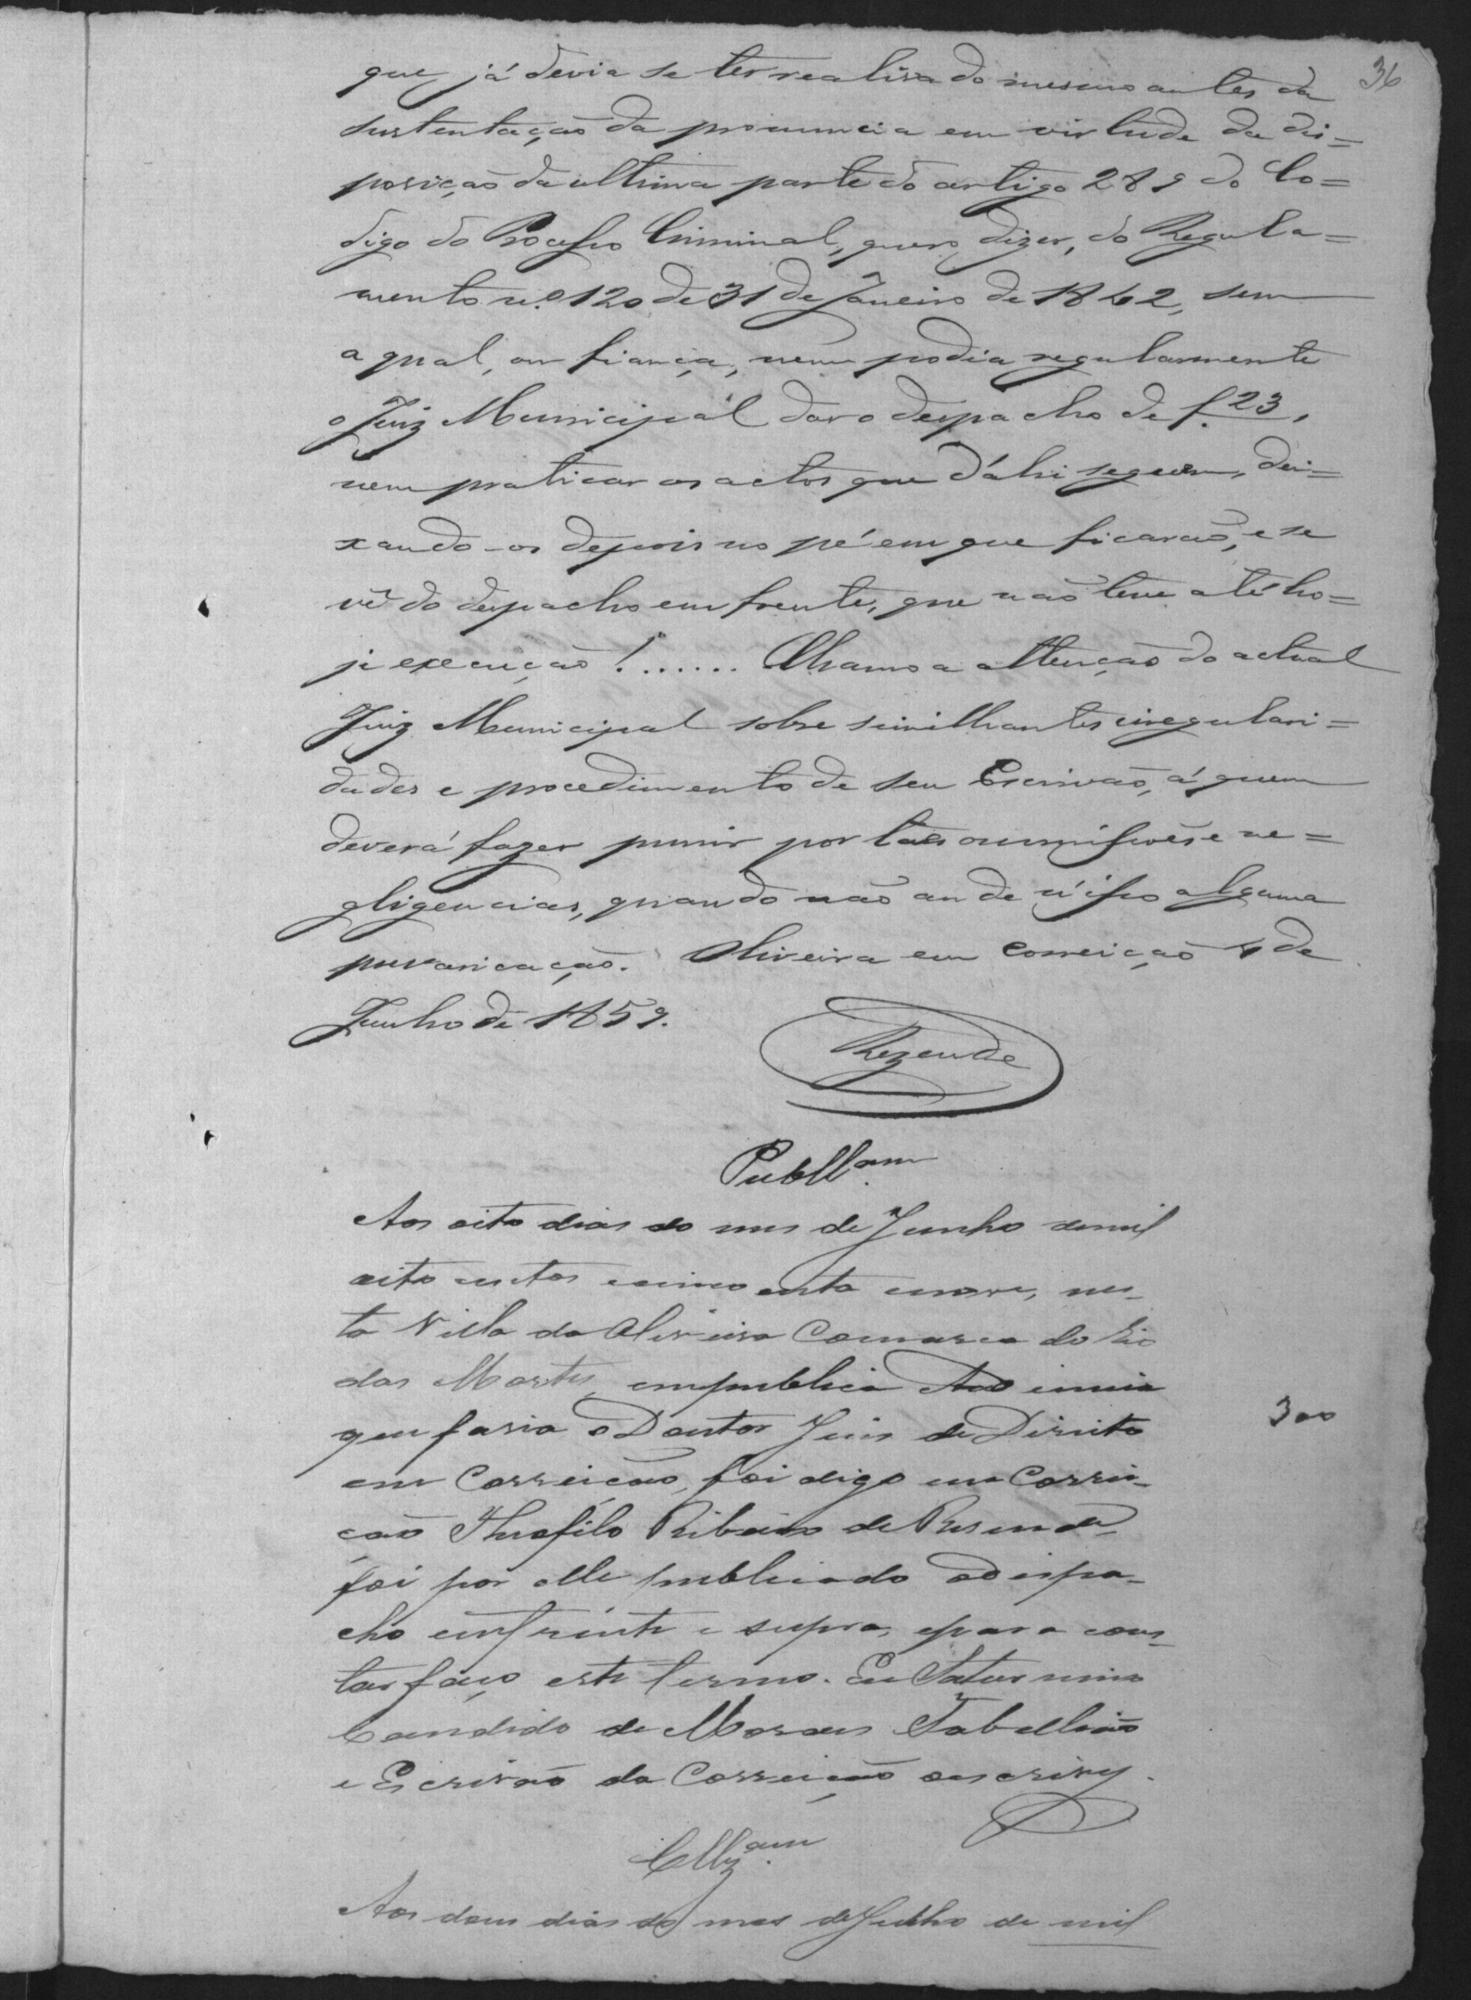 36
que já devia se ter realisado mesmo antes da
sustentação da pronuncia em virtude da dis=
posição da ultima parte do artigo 289 do Co=
digo do Processo Criminal, quero dizer, do Regula=
mento n.º 120 de 31 de Janeiro de 1842, sem
a qual, ou fiança, nem podia regularmente
o Juiz Municipal dar o despacho de f. 23,
nem praticar os actos que d'ahi seguem, dei=
xando-os depois no pé em que ficarão, e se
vê do despacho em frente, que não teve até ho=
je execução!...... Chamo a attenção do actual
Juiz Municipal sobre similhantes irregulari=
dades e procedimento de seu Escrivão, á quem
deverá fazer punir por taes ommissões e ne=
gligencias, quando não ande n'isso alguma
prevaricação. Oliveira em Correição 4 de
Junho de 1859.
Rezende
Publl.am
Aos oito dias do mes de Junho de mil
oito centos e cincoenta e nove, nes-
ta Villa da Oliveira Comarca do Rio
das Mortes, em publica Audiencia
que fasia o Doutor Juis de Direito
em Correicão, foi digo em Correi-
ção Theofilo Ribeiro de Resende,
foi por elle publicado o despa-
cho em frente e supra, e para cons-
tar faço este termo. Eu Saturnino
Candido de Moraes Tabellião
e Escrivão da Correição o escrevy.
300
Cllz.am
Aos dous dias do mes de Julho de mil